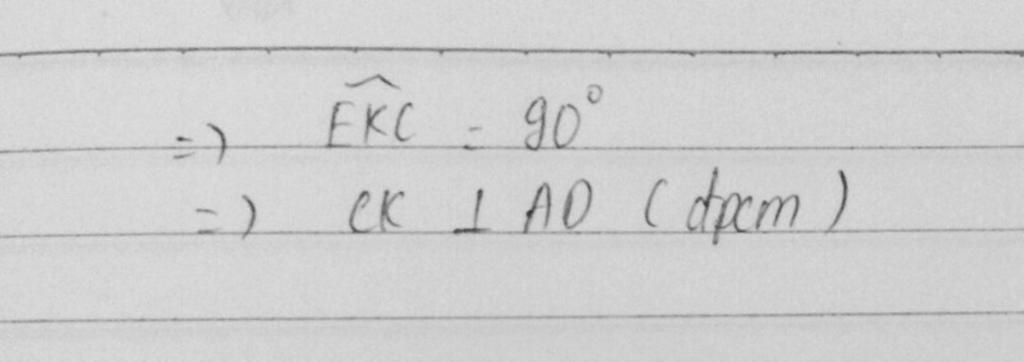 => \widehat{EKC} = 90°
=> CK ⊥ AD (đpcm)